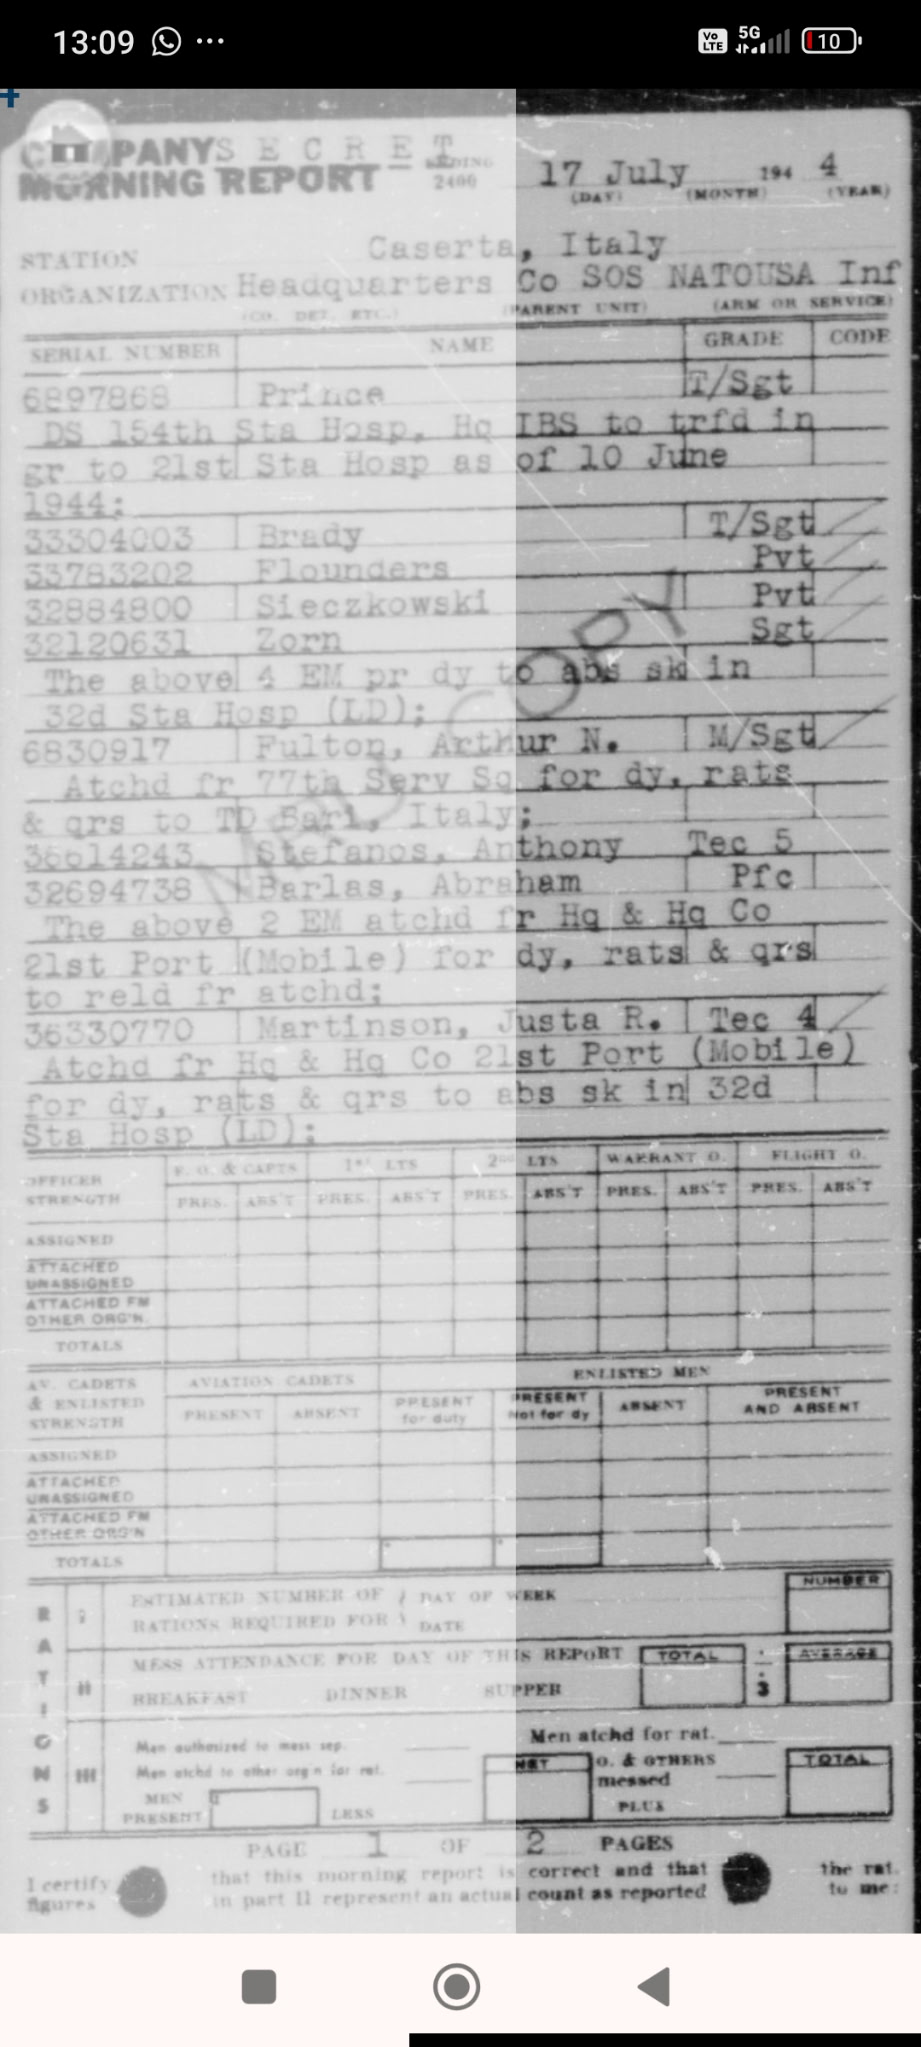 13:09
Vo LTE 5G 10
COMPANY S E C R E T
MORNING REPORT ENDING 2400 17 July 194 4
(DAY) (MONTH) (YEAR)
STATION Caserta, Italy
ORGANIZATION Headquarters Co SOS NATOUSA Inf
(CO. DET. ETC.) (PARENT UNIT) (ARM OR SERVICE)
SERIAL NUMBER NAME GRADE CODE
6897868 Prince T/Sgt
DS 154th Sta Hosp, Hq IBS to trfd in
gr to 21st Sta Hosp as of 10 June
1944;
33304003 Brady T/Sgt
33783202 Flounders Pvt
32884800 Sieczkowski Pvt
32120631 Zorn Sgt
The above 4 EM pr dy to abs sk in
32d Sta Hosp (LD);
6830917 Fulton, Arthur N. M/Sgt
Atchd fr 77th Serv Sq for dy, rats
& qrs to TD Bari, Italy;
36614243 Stefanos, Anthony Tec 5
32694738 Barlas, Abraham Pfc
The above 2 EM atchd fr Hq & Hq Co
21st Port (Mobile) for dy, rats & qrs
to reld fr atchd;
36330770 Martinson, Justa R. Tec 4
Atchd fr Hq & Hq Co 21st Port (Mobile)
for dy, rats & qrs to abs sk in 32d
Sta Hosp (LD);
COPY
OFFICER STRENGTH F. O. & CAPTS 1ST LTS 2ND LTS WARRANT O. FLIGHT O.
PRES. ABS'T PRES. ABS'T PRES. ABS'T PRES. ABS'T PRES. ABS'T
ASSIGNED
ATTACHED UNASSIGNED
ATTACHED FM OTHER ORG'N.
TOTALS
AV. CADETS & ENLISTED STRENGTH AVIATION CADETS ENLISTED MEN
PRESENT ABSENT PRESENT for duty PRESENT Not for dy ABSENT PRESENT AND ABSENT
ASSIGNED
ATTACHED UNASSIGNED
ATTACHED FM OTHER ORG'N
TOTALS
RATIONS
I ESTIMATED NUMBER OF DAY OF WEEK NUMBER
RATIONS REQUIRED FOR DATE
II MESS ATTENDANCE FOR DAY OF THIS REPORT TOTAL ÷ 3 AVERAGE
BREAKFAST DINNER SUPPER
III Men authorized to mess sep. Men atchd for rat.
Men atchd to other orgn for rat. NET O. & OTHERS messed TOTAL
MEN PRESENT LESS PLUS
PAGE 1 OF 2 PAGES
I certify that this morning report is correct and that the rat.
figures in part II represent an actual count as reported to me: